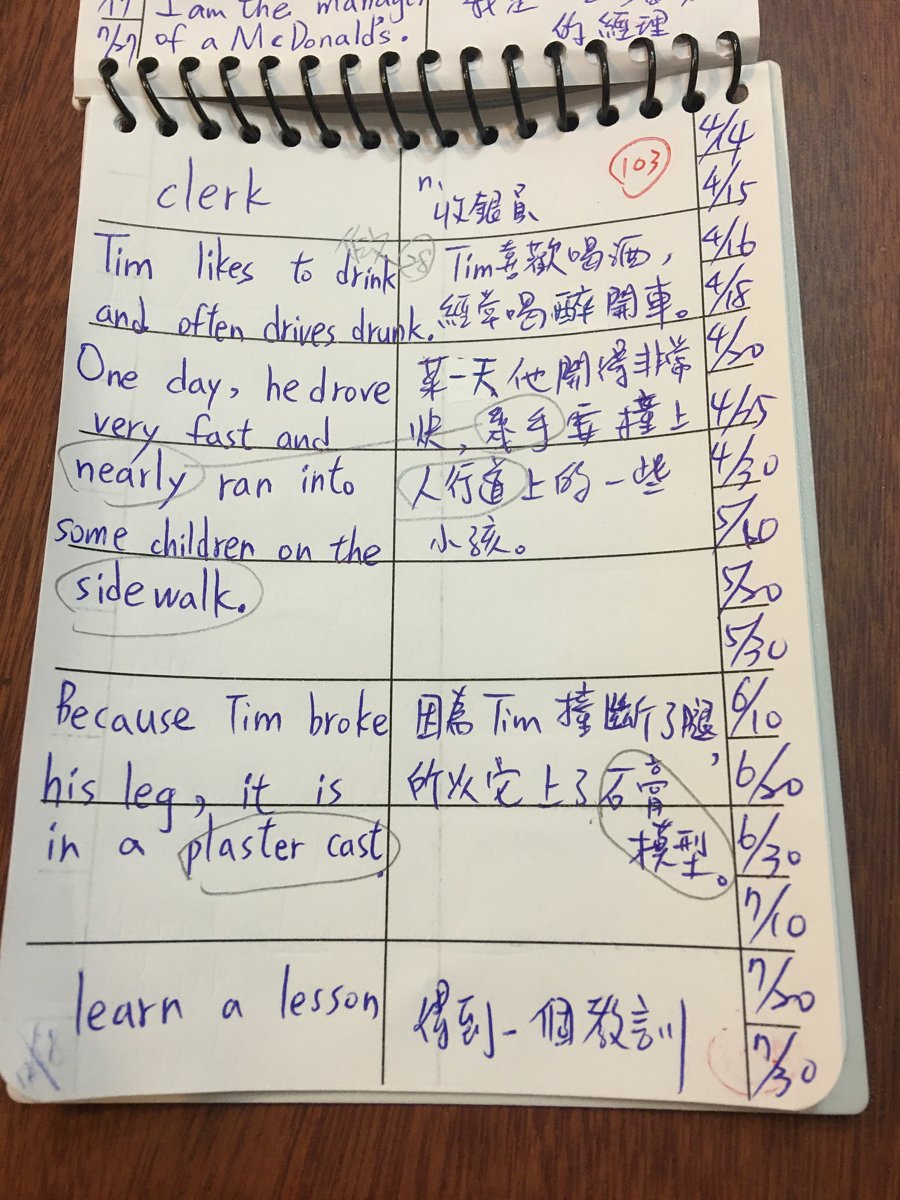 I am the manager
7/27 of a McDonald's.
的經理
clerk
n.
收銀員
103
Tim likes to drink
and often drives drunk.
28
Tim喜歡喝酒,
經常喝醉開車。
One day, he drove
very fast and
nearly ran into
some children on the
sidewalk.
某一天他開得非常
快, 幾乎要撞上
人行道上的一些
小孩。
Because Tim broke
his leg, it is
in a plaster cast.
因為Tim撞斷了腿,
所以它上了石膏
模型。
learn a lesson
得到一個教訓
4/14
4/15
4/16
4/18
4/20
4/25
4/30
5/10
5/20
5/30
6/10
6/20
6/30
7/10
7/20
7/30